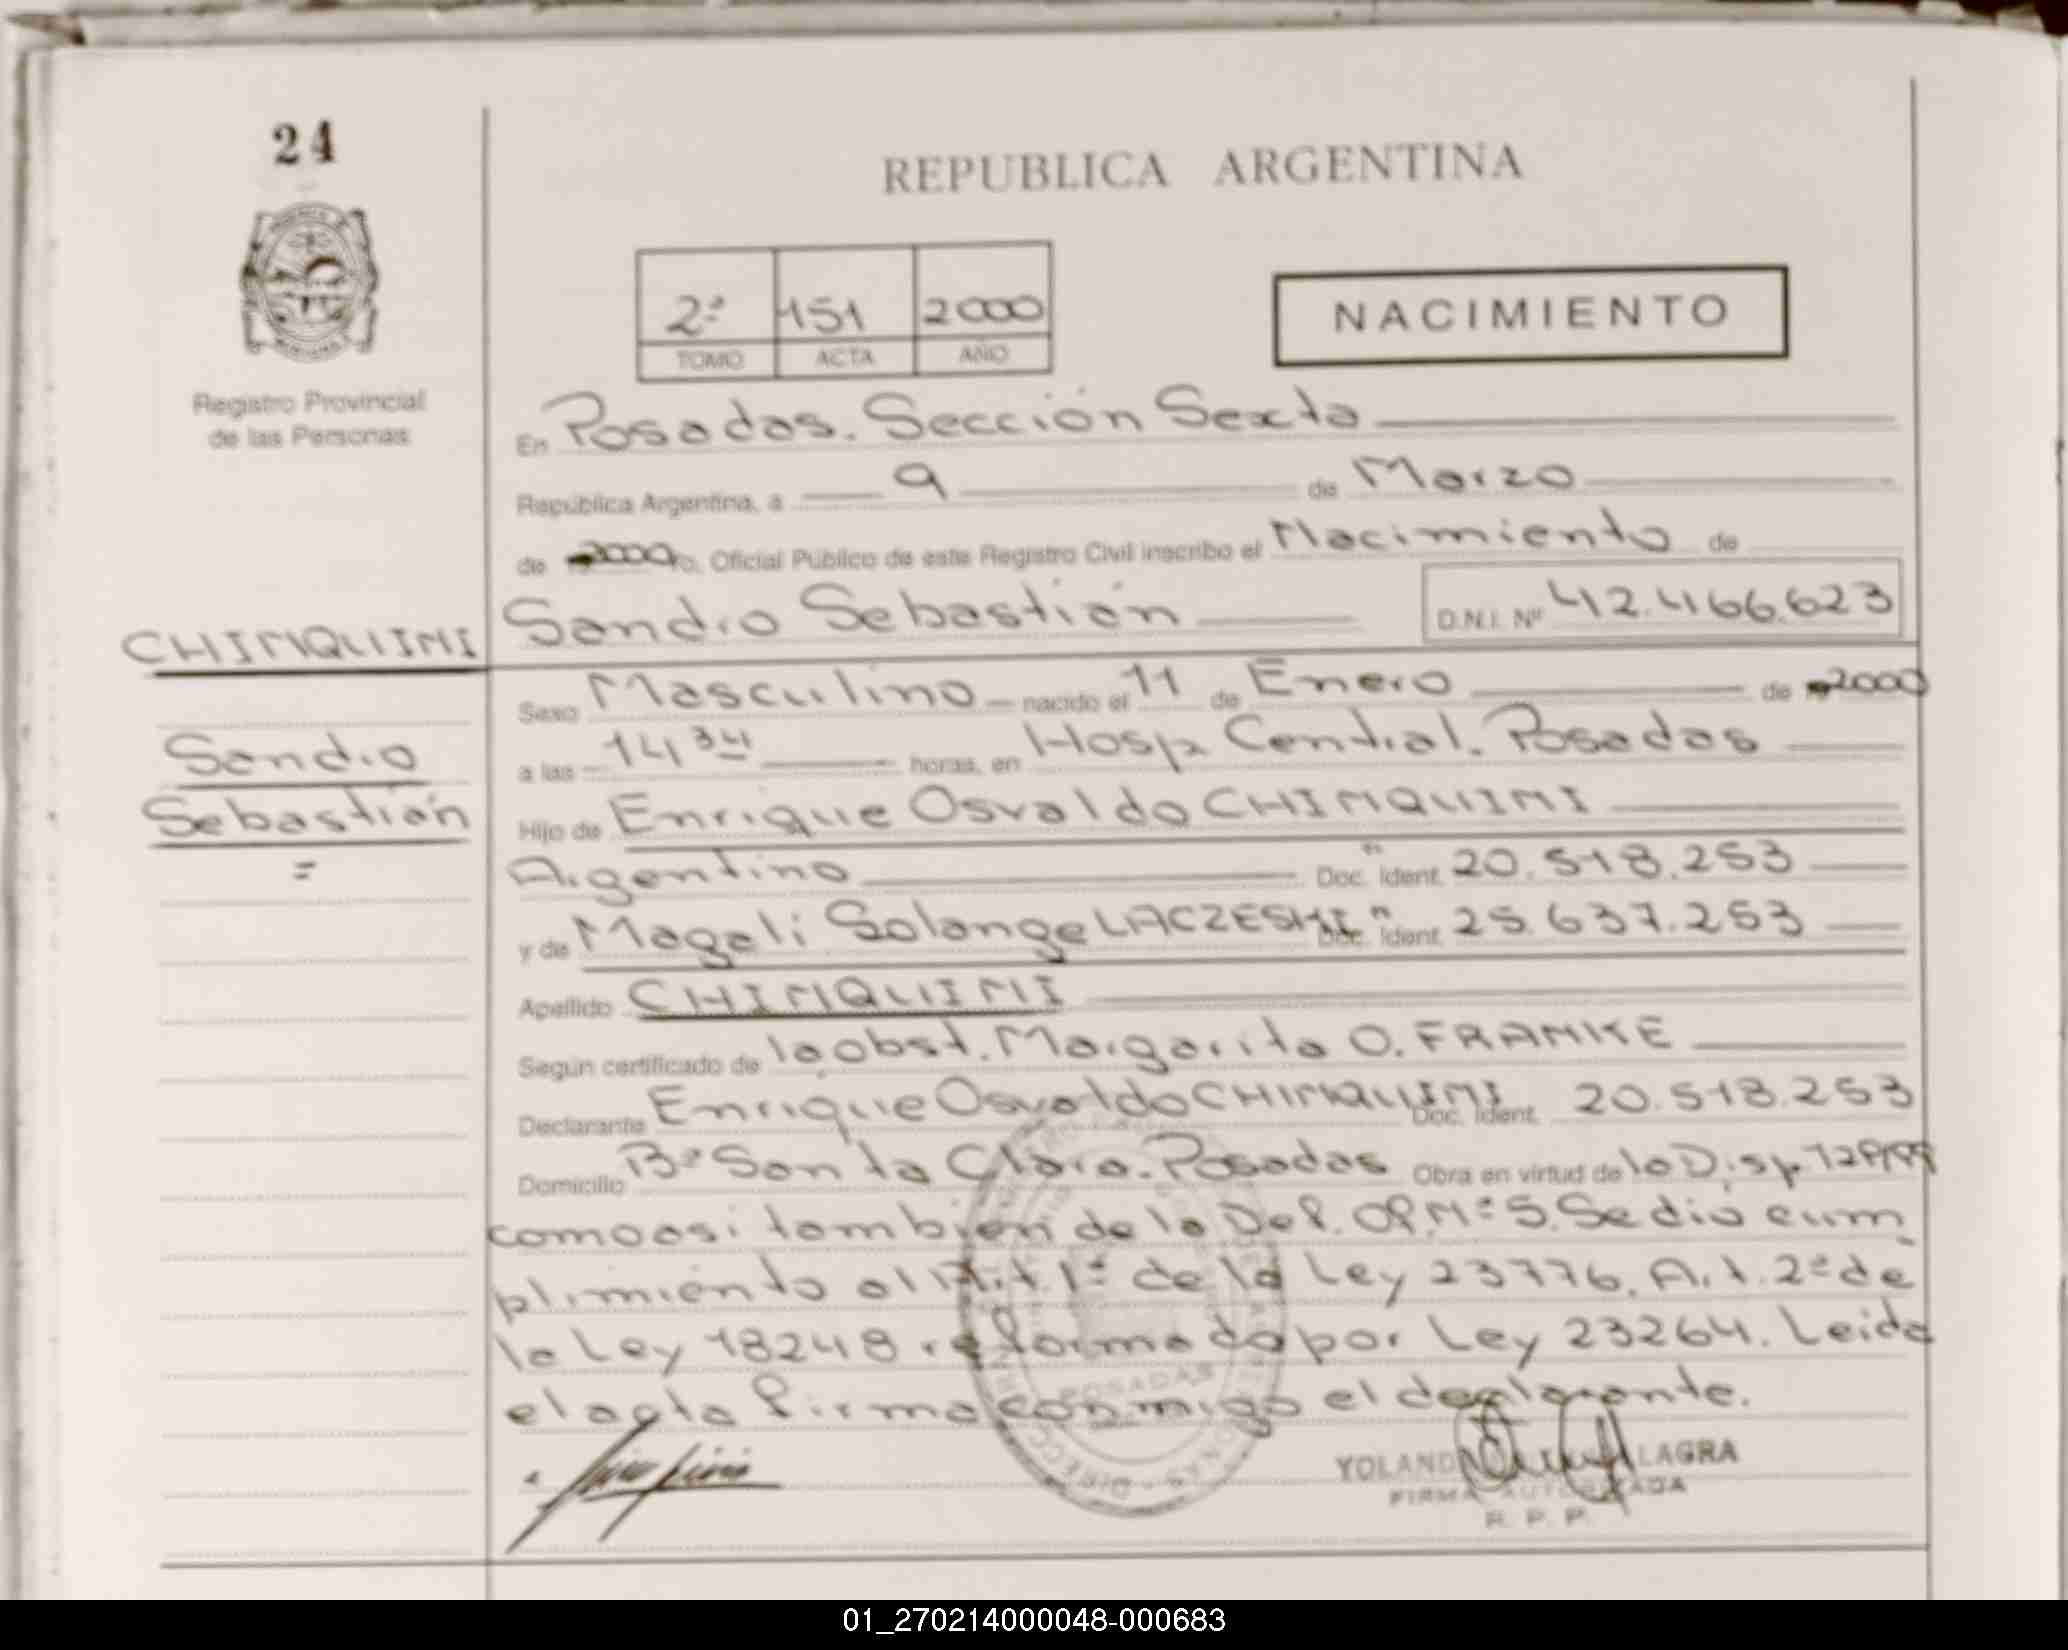 24
REPUBLICA ARGENTINA
2ª 151 2000
TOMO ACTA AÑO
NACIMIENTO
Registro Provincial
de las Personas
En Posadas. Sección Sexta
República Argentina, a 9 de Marzo
de 2000 yo, Oficial Público de este Registro Civil inscribo el Nacimiento de
CHINQUINI Sandro Sebastián D.N.I. Nº 42.466.623
Sexo Masculino nacido el 11 de Enero de 2000
Sandro
a las 14 34 horas, en Hosp. Central. Posadas
Sebastián
Hijo de Enrique Osvaldo CHINQUINI
Argentino Doc. Ident. 20.518.253
y de Magali Solange LACZESKI Doc. Ident. 25.637.253
Apellido CHINQUINI
Según certificado de la obst. Margarita O. FRANKE
Declarante Enrique Osvaldo CHINQUINI Doc. Ident. 20.518.253
Domicilio Bº Santa Clara. Posadas Obra en virtud de la Disp.
como asi tambien de la Def. OP. Nº 5. Se dió cum
plimiento al Art. 1º de la Ley 23776. Art. 2º de
la Ley 18248 reformado por Ley 23264. Leida
el acta firma conmigo el declarante.
POSADAS
LAGRA
FIRMA AUTORIZADA
R. P. P.
01_270214000048-000683